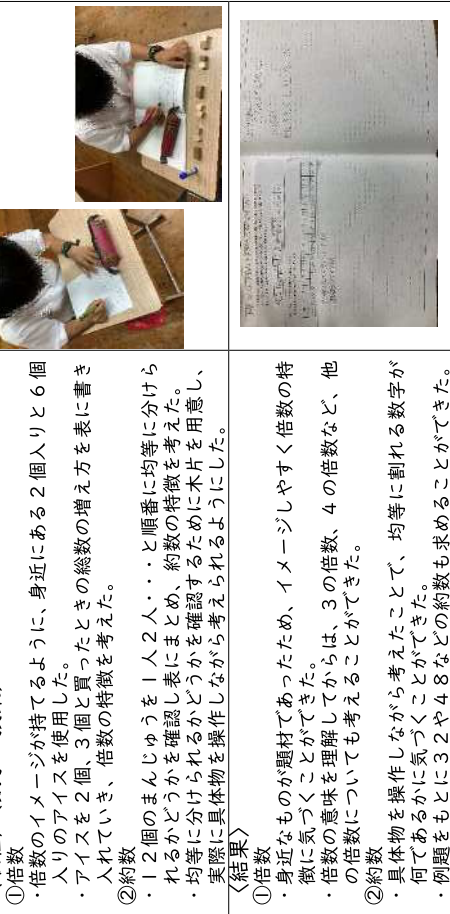 ①倍数
・倍数のイメージが持てるように、身近にある2個入りと6個
入りのアイスを使用した。
・アイスを2個、3個と買ったときの総数の増え方を表に書き
入れていき、倍数の特徴を考えた。
②約数
・12個のまんじゅうを1人2人・・・と順番に均等に分けら
れるかどうかを確認し表にまとめ、約数の特徴を考えた。
・均等に分けられるかどうかを確認するために木片を用意し、
実際に具体物を操作しながら考えられるようにした。
〈結果〉
①倍数
・身近なものが題材であったため、イメージしやすく倍数の特
徴に気づくことができた。
・倍数の意味を理解してからは、3の倍数、4の倍数など、他
の倍数についても考えることができた。
②約数
・具体物を操作しながら考えたことで、均等に割れる数字が
何であるかに気づくことができた。
・例題をもとに32や48などの約数も求めることができた。